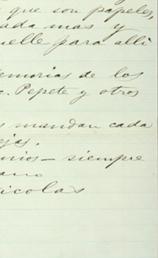 que son papeles,
ada mas y
uelle para alli
emorias de los
Pepete y otros
s mandan cada
ejos.
nios - siempre
icolas